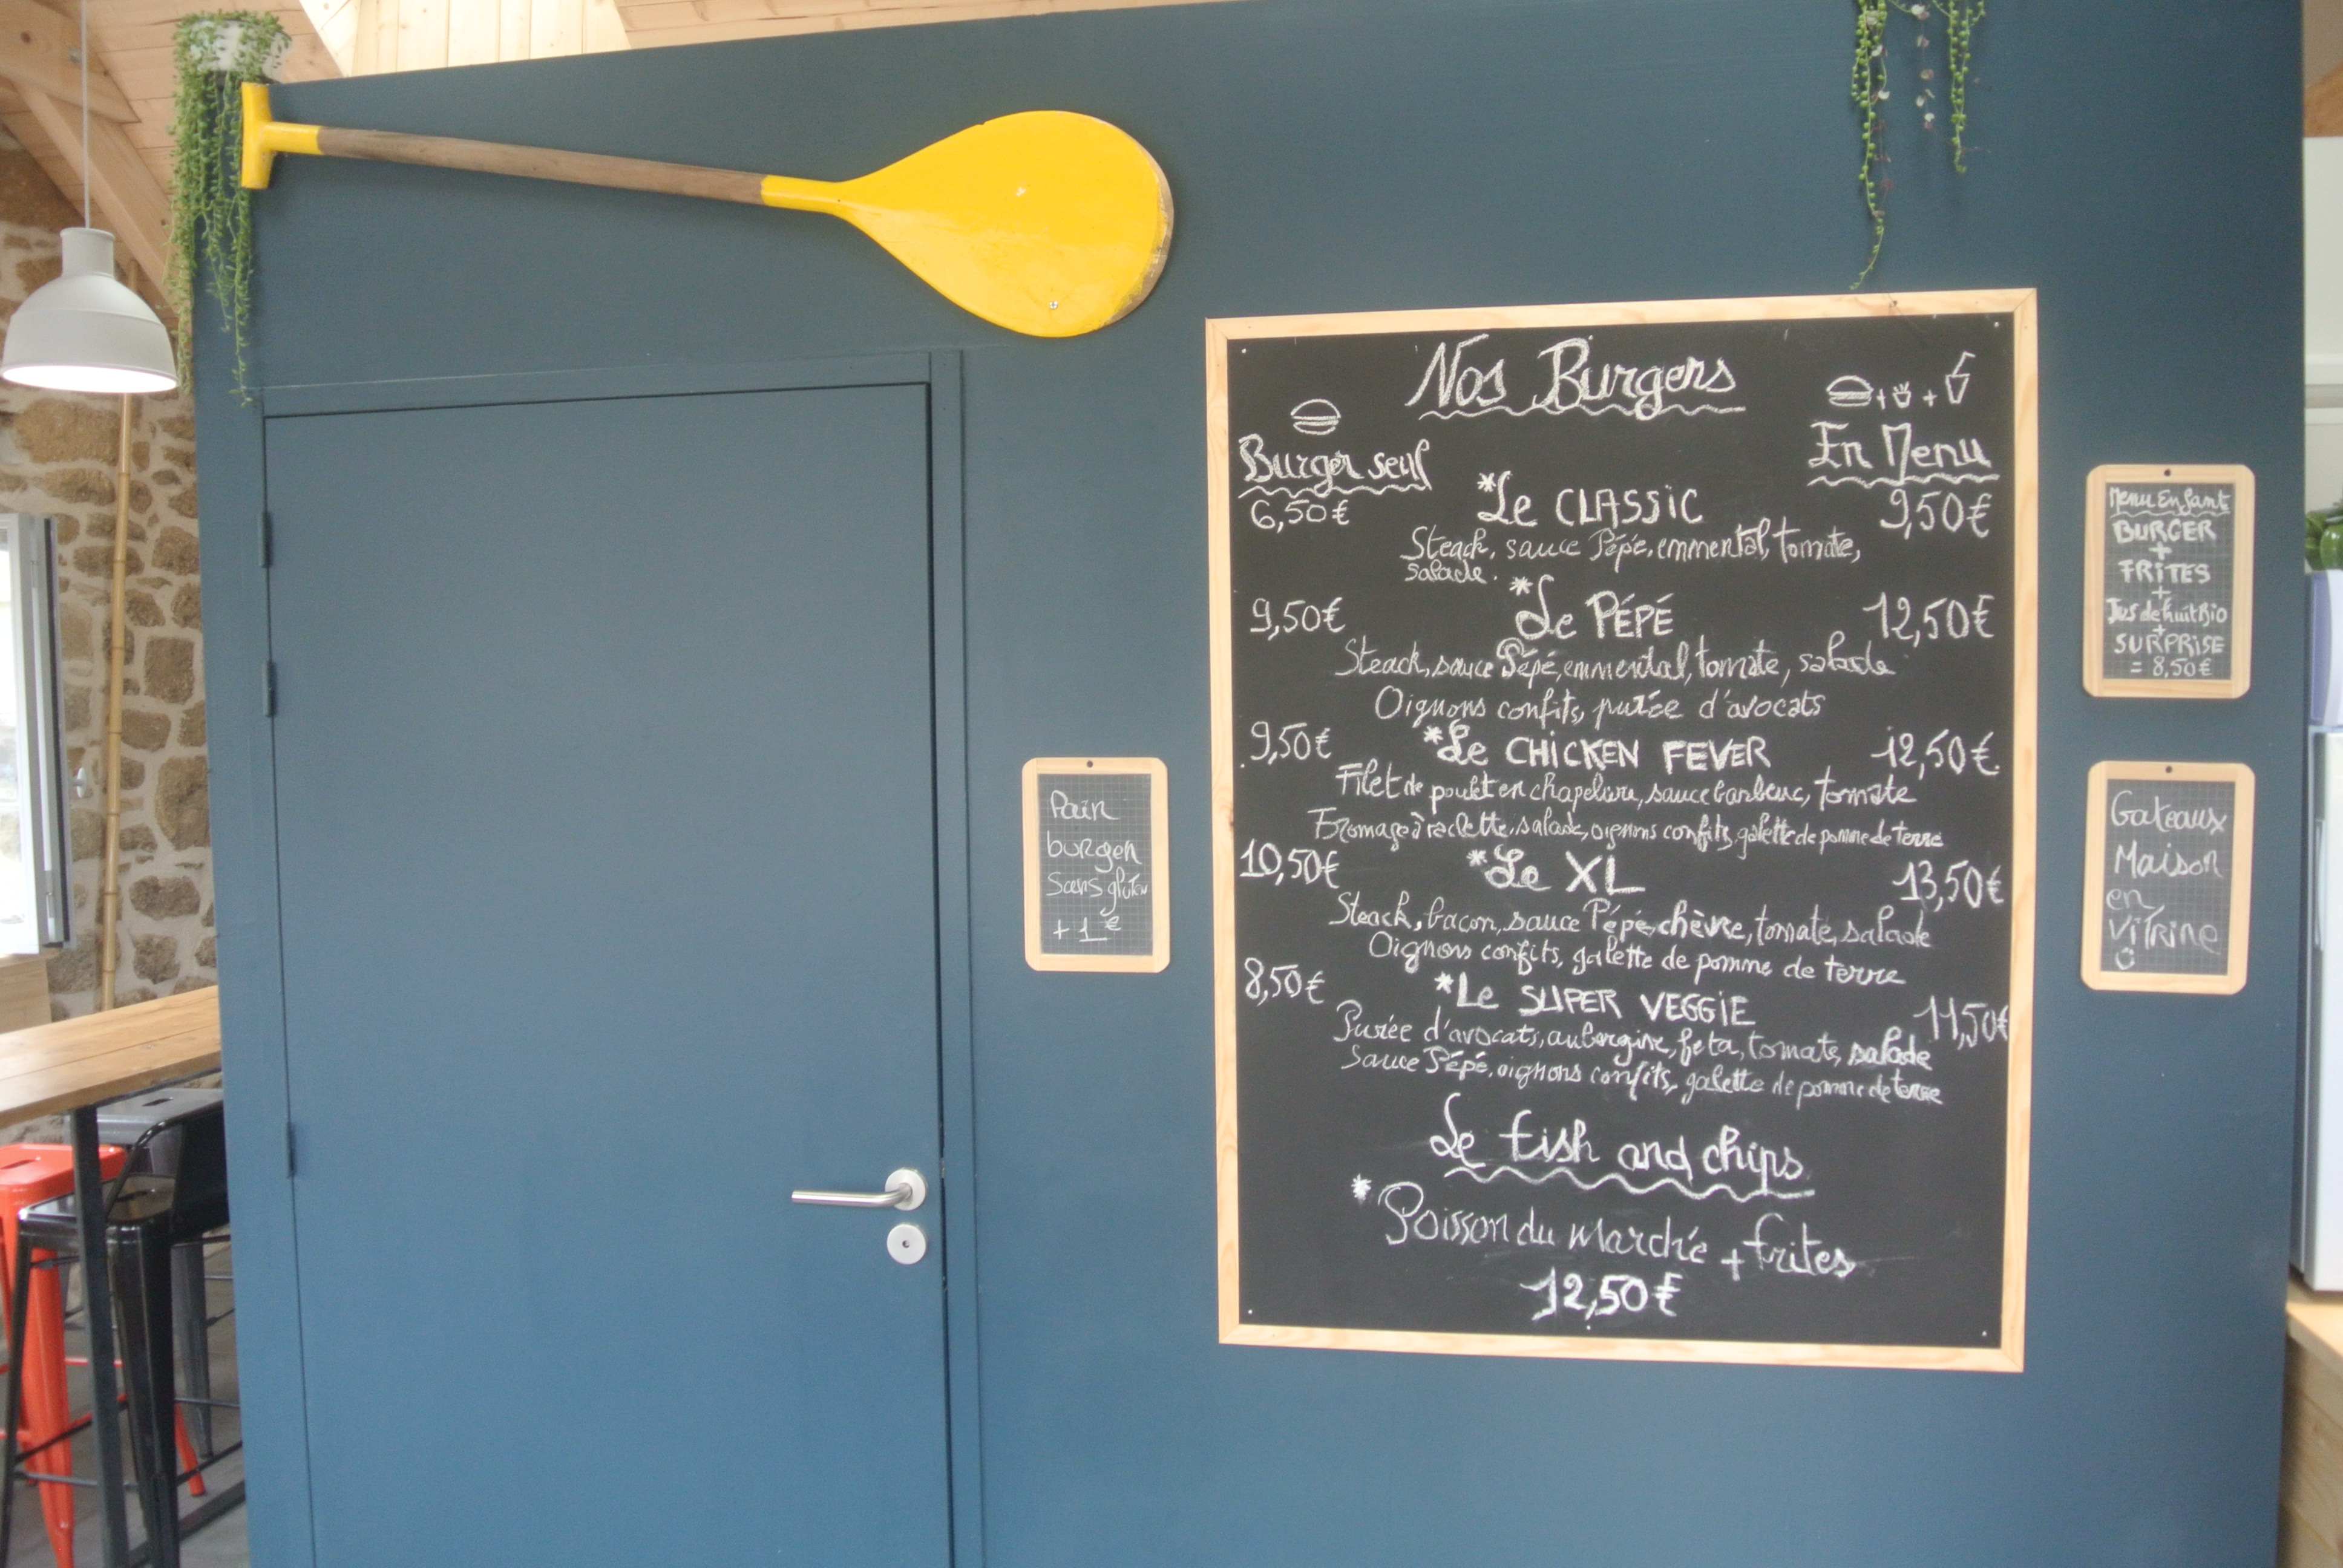 Nos Burgers
Burger seul
En Menu
6,50€ *Le CLASSIC 9,50€
Steack, sauce Pépé, emmental, tomate,
salade.
9,50€ *Le PÉPÉ 12,50€
Steack, sauce Pépé, emmental, tomate, salade
Oignons confits, purée d'avocats
9,50€ *Le CHICKEN FEVER 12,50€
Filet de poulet en chapelure, sauce barbecue, tomate
Fromage à raclette, salade, oignons confits, galette de pomme de terre
10,50€ *Le XL 13,50€
Steack, bacon, sauce Pépé, chèvre, tomate, salade
Oignons confits, galette de pomme de terre
8,50€ *Le SUPER VEGGIE 11,50€
Purée d'avocats, aubergine, feta, tomate, salade
Sauce Pépé, oignons confits, galette de pomme de terre
Le fish and chips
*Poisson du marché + frites
12,50€
Pain
burger
Sans gluten
+1€
Menu Enfant
BURGER
+
FRITES
+
Jus de fruit Bio
+
SURPRISE
= 8,50€
Gateaux
Maison
en
VITRINE